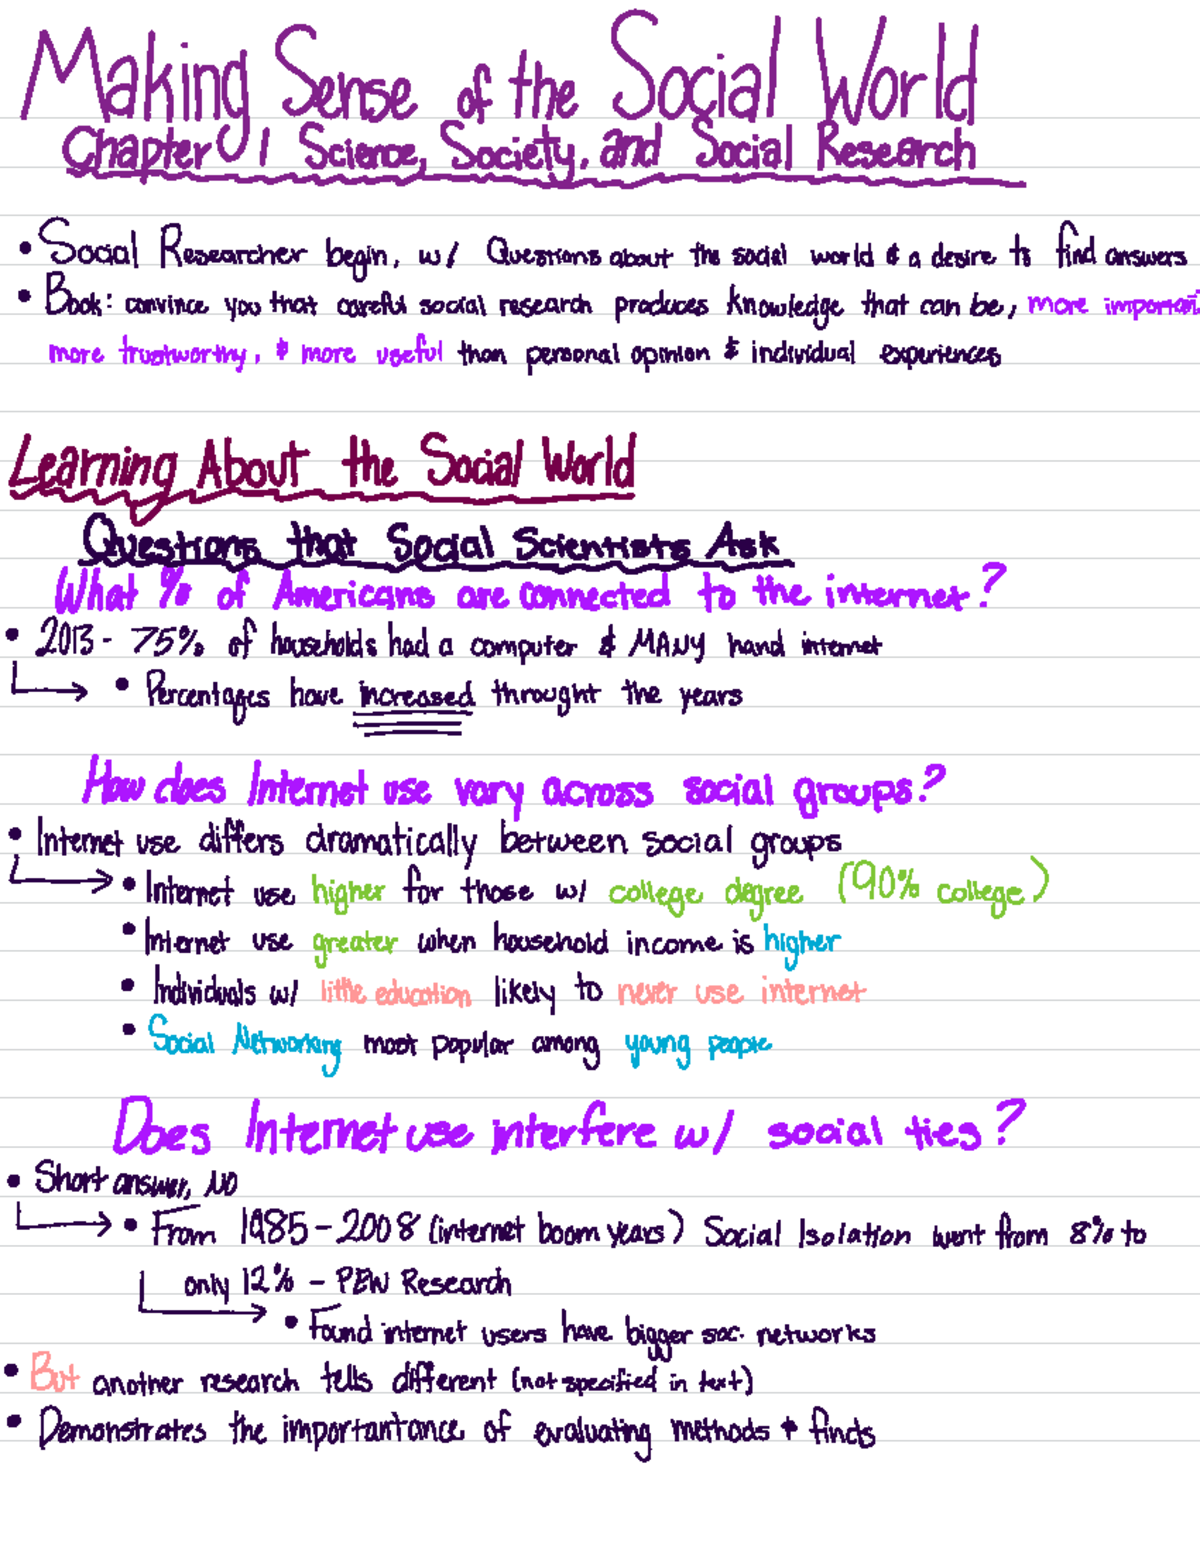 Making Sense of the Social World
Chapter 1 Science, Society, and Social Research
• Social Researcher begin, w/ Questions about the social world & a desire to find answers
• Book: convince you that careful social research produces knowledge that can be, more important
more trustworthy, & more useful than personal opinion & individual experiences
Learning About the Social World
Questions that Social Scientists Ask
What % of Americans are connected to the internet?
• 2013 - 75% of households had a computer & MANY hand internet
• Percentages have increased throught the years
How does Internet use vary across social groups?
• Internet use differs dramatically between social groups
• Internet use higher for those w/ college degree (90% college)
• Internet use greater when household income is higher
• Individuals w/ little education likely to never use internet
• Social Networking most popular among young people
Does Internet use interfere w/ social ties?
• Short answer, NO
• From 1985-2008 (internet boom years) Social Isolation went from 8% to
only 12% - PEW Research
• Found internet users have bigger soc. networks
• But another research tells different (not specified in text)
• Demonstrates the importantance of evaluating methods + finds